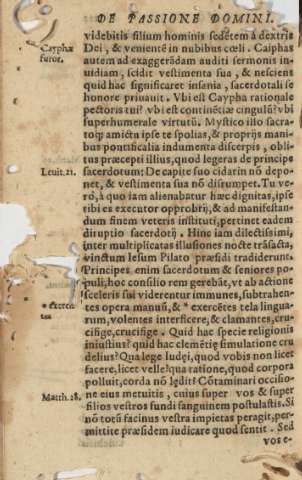 DE PASSIONE DOMINI.
videbitis filium hominis sedẽtem à dextris
Dei, & venientẽ in nubibus cœli. Caiphas
autem ad exaggerãdam auditi sermonis in-
uidiam, scidit vestimenta sua, & nesciens
quid hac significaret insania, sacerdotali se
honore priuauit. Vbi est Caypha rationale
pectoris tui? vbi est cõtinẽtiæ cingulũ? vbi
superhumerale virtutũ? Mystico illo sacra-
toq; amictu ipse te spolias, & proprijs mani-
bus pontificalia indumenta discerpis, obli-
tus præcepti illius, quod legeras de principe
sacerdotum: De capite suo cidarin nõ depo-
net, & vestimenta sua nõ disrumpet. Tu ve-
rò, à quo iam alienabatur hæc dignitas, ipse
tibi es executor opprobrij, & ad manifestan-
dum finem veteris instituti, pertinet eadem
diruptio sacerdotij. Hinc iam dilectissimi,
inter multiplicatas illusiones nocte trãsacta,
vinctum Iesum Pilato præsidi tradiderunt.
Principes enim sacerdotum & seniores po-
puli, hoc consilio rem gerebãt, vt ab actione
sceleris sui viderentur immunes, subtrahen-
tes opera manuũ, & * exercẽtes tela lingua-
rum, volentes interficere, & clamantes, cru-
cifige, crucifige. Quid hac specie religionis
iniustius? quid hac clemẽtię simulatione cru
delius? Qua lege Iudęi, quod vobis non licet
facere, licet velle? qua ratione, quod corpora
polluit, corda nõ lędit? Cõtaminari occisio-
ne eius metuitis, cuius super vos & super
filios vestros fundi sanguinem postulastis. Si
nõ totũ facinus vestra impietas peragit, per-
mittite præsidem iudicare quod sentit. Sed
vos e-
Cayphæ
furor.
Leuit. 21.
Matth. 28.